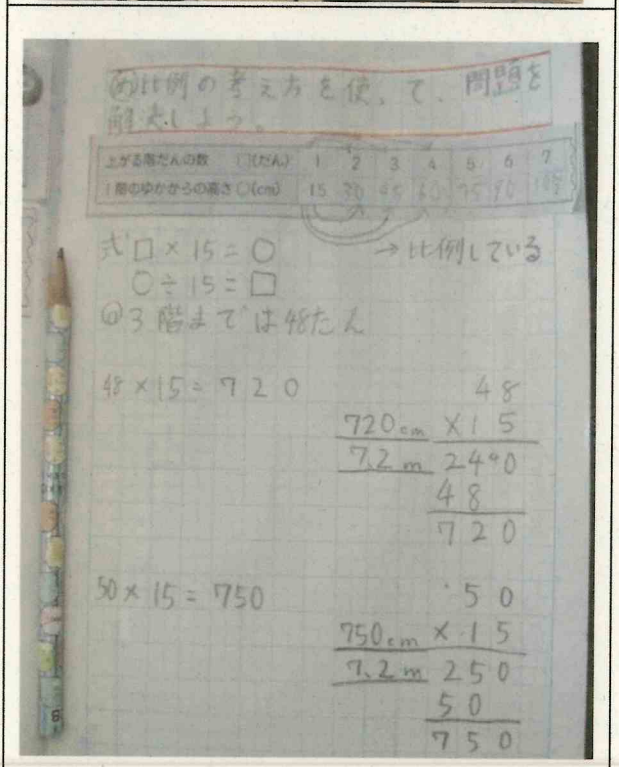 め比例の考え方を使って、問題を
解決しよう。
上がる階だんの数 □(だん) 1 2 3 4 5 6 7
1階のゆかからの高さ○(cm) 15 30 45 60 75 90 105
式 □×15=○ →比例している
○÷15=□
3階までは48だん
48×15=720
48
720cm ×15
7.2m 240
48
720
50×15=750
50
750cm ×15
7.2m 250
50
750